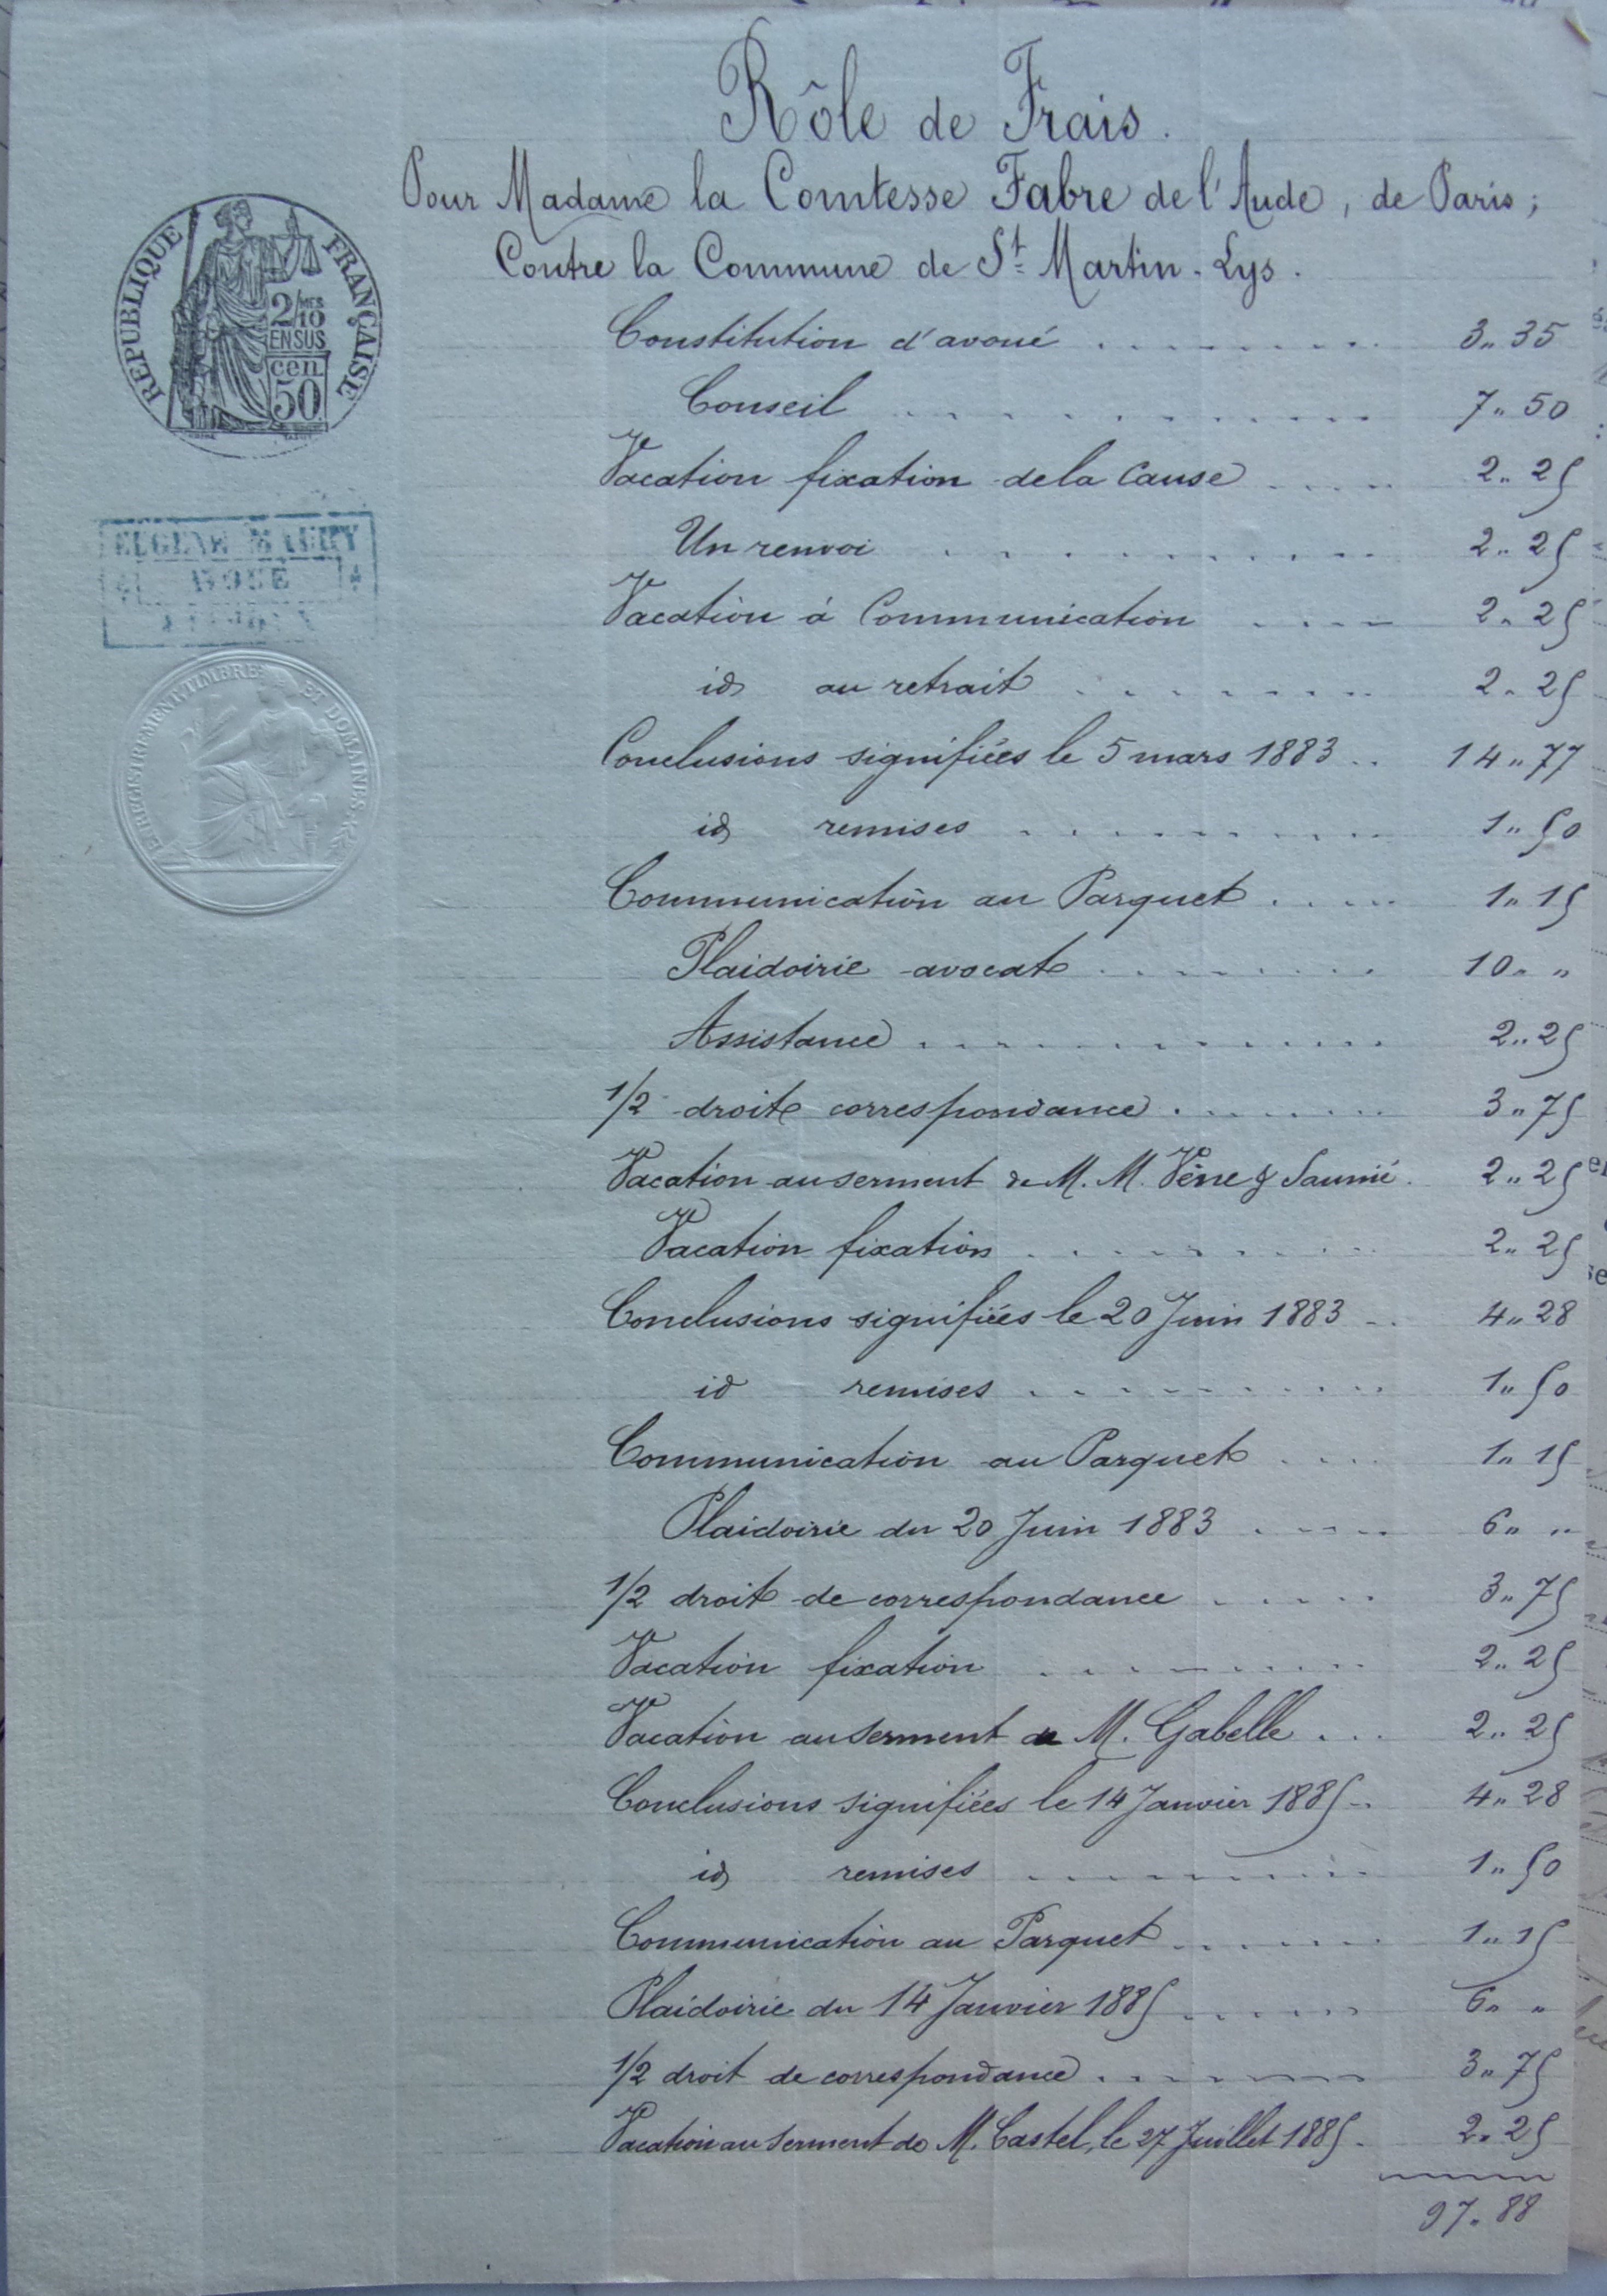 Rôle de Frais.
Pour Madame la Comtesse Fabre de l'Aude, de Paris;
Contre la Commune de St Martin-Lys.
RÉPUBLIQUE FRANÇAISE
2/10 MES
EN SUS
cen
50
EUGÈNE MAURY
AVOUÉ
ENREGISTREMENT TIMBRE ET DOMAINES
Constitution d'avoué . . . . . . . . 3" 35
Conseil . . . . . . . . . . 7" 50
Vacation fixation de la Cause . . . . 2" 25
Un renvoi . . . . . . . . . . 2" 25
Vacation à Communication . . . . 2" 25
id au retrait . . . . . . . . 2" 25
Conclusions signifiées le 5 mars 1883 . . 14" 77
id remises . . . . . . . . . 1" 50
Communication au Parquet . . . . . 1" 15
Plaidoirie avocat . . . . . . . . 10" "
Assistance . . . . . . . . . . . . 2" 25
1/2 droit correspondance . . . . . . . 3" 75
Vacation au serment de M. M. Vène & Saunié . 2" 25
Vacation fixation . . . . . . . . . 2" 25
Conclusions signifiées le 20 Juin 1883 . . 4" 28
id remises . . . . . . . . . 1" 50
Communication au Parquet . . . . 1" 15
Plaidoirie du 20 Juin 1883 . . . . . 6" "
1/2 droit de correspondance . . . . . 3" 75
Vacation fixation . . . . . . . . . 2" 25
Vacation au serment de M. Gabelle . . . 2" 25
Conclusions signifiées le 14 Janvier 1885 . . 4" 28
id remises . . . . . . . . . 1" 50
Communication au Parquet . . . . . . . 1" 15
Plaidoirie du 14 Janvier 1885 . . . . . . 6" "
1/2 droit de correspondance . . . . . . . 3" 75
Vacation au serment de M. Castel, le 27 Juillet 1885 . 2" 25
97" 88